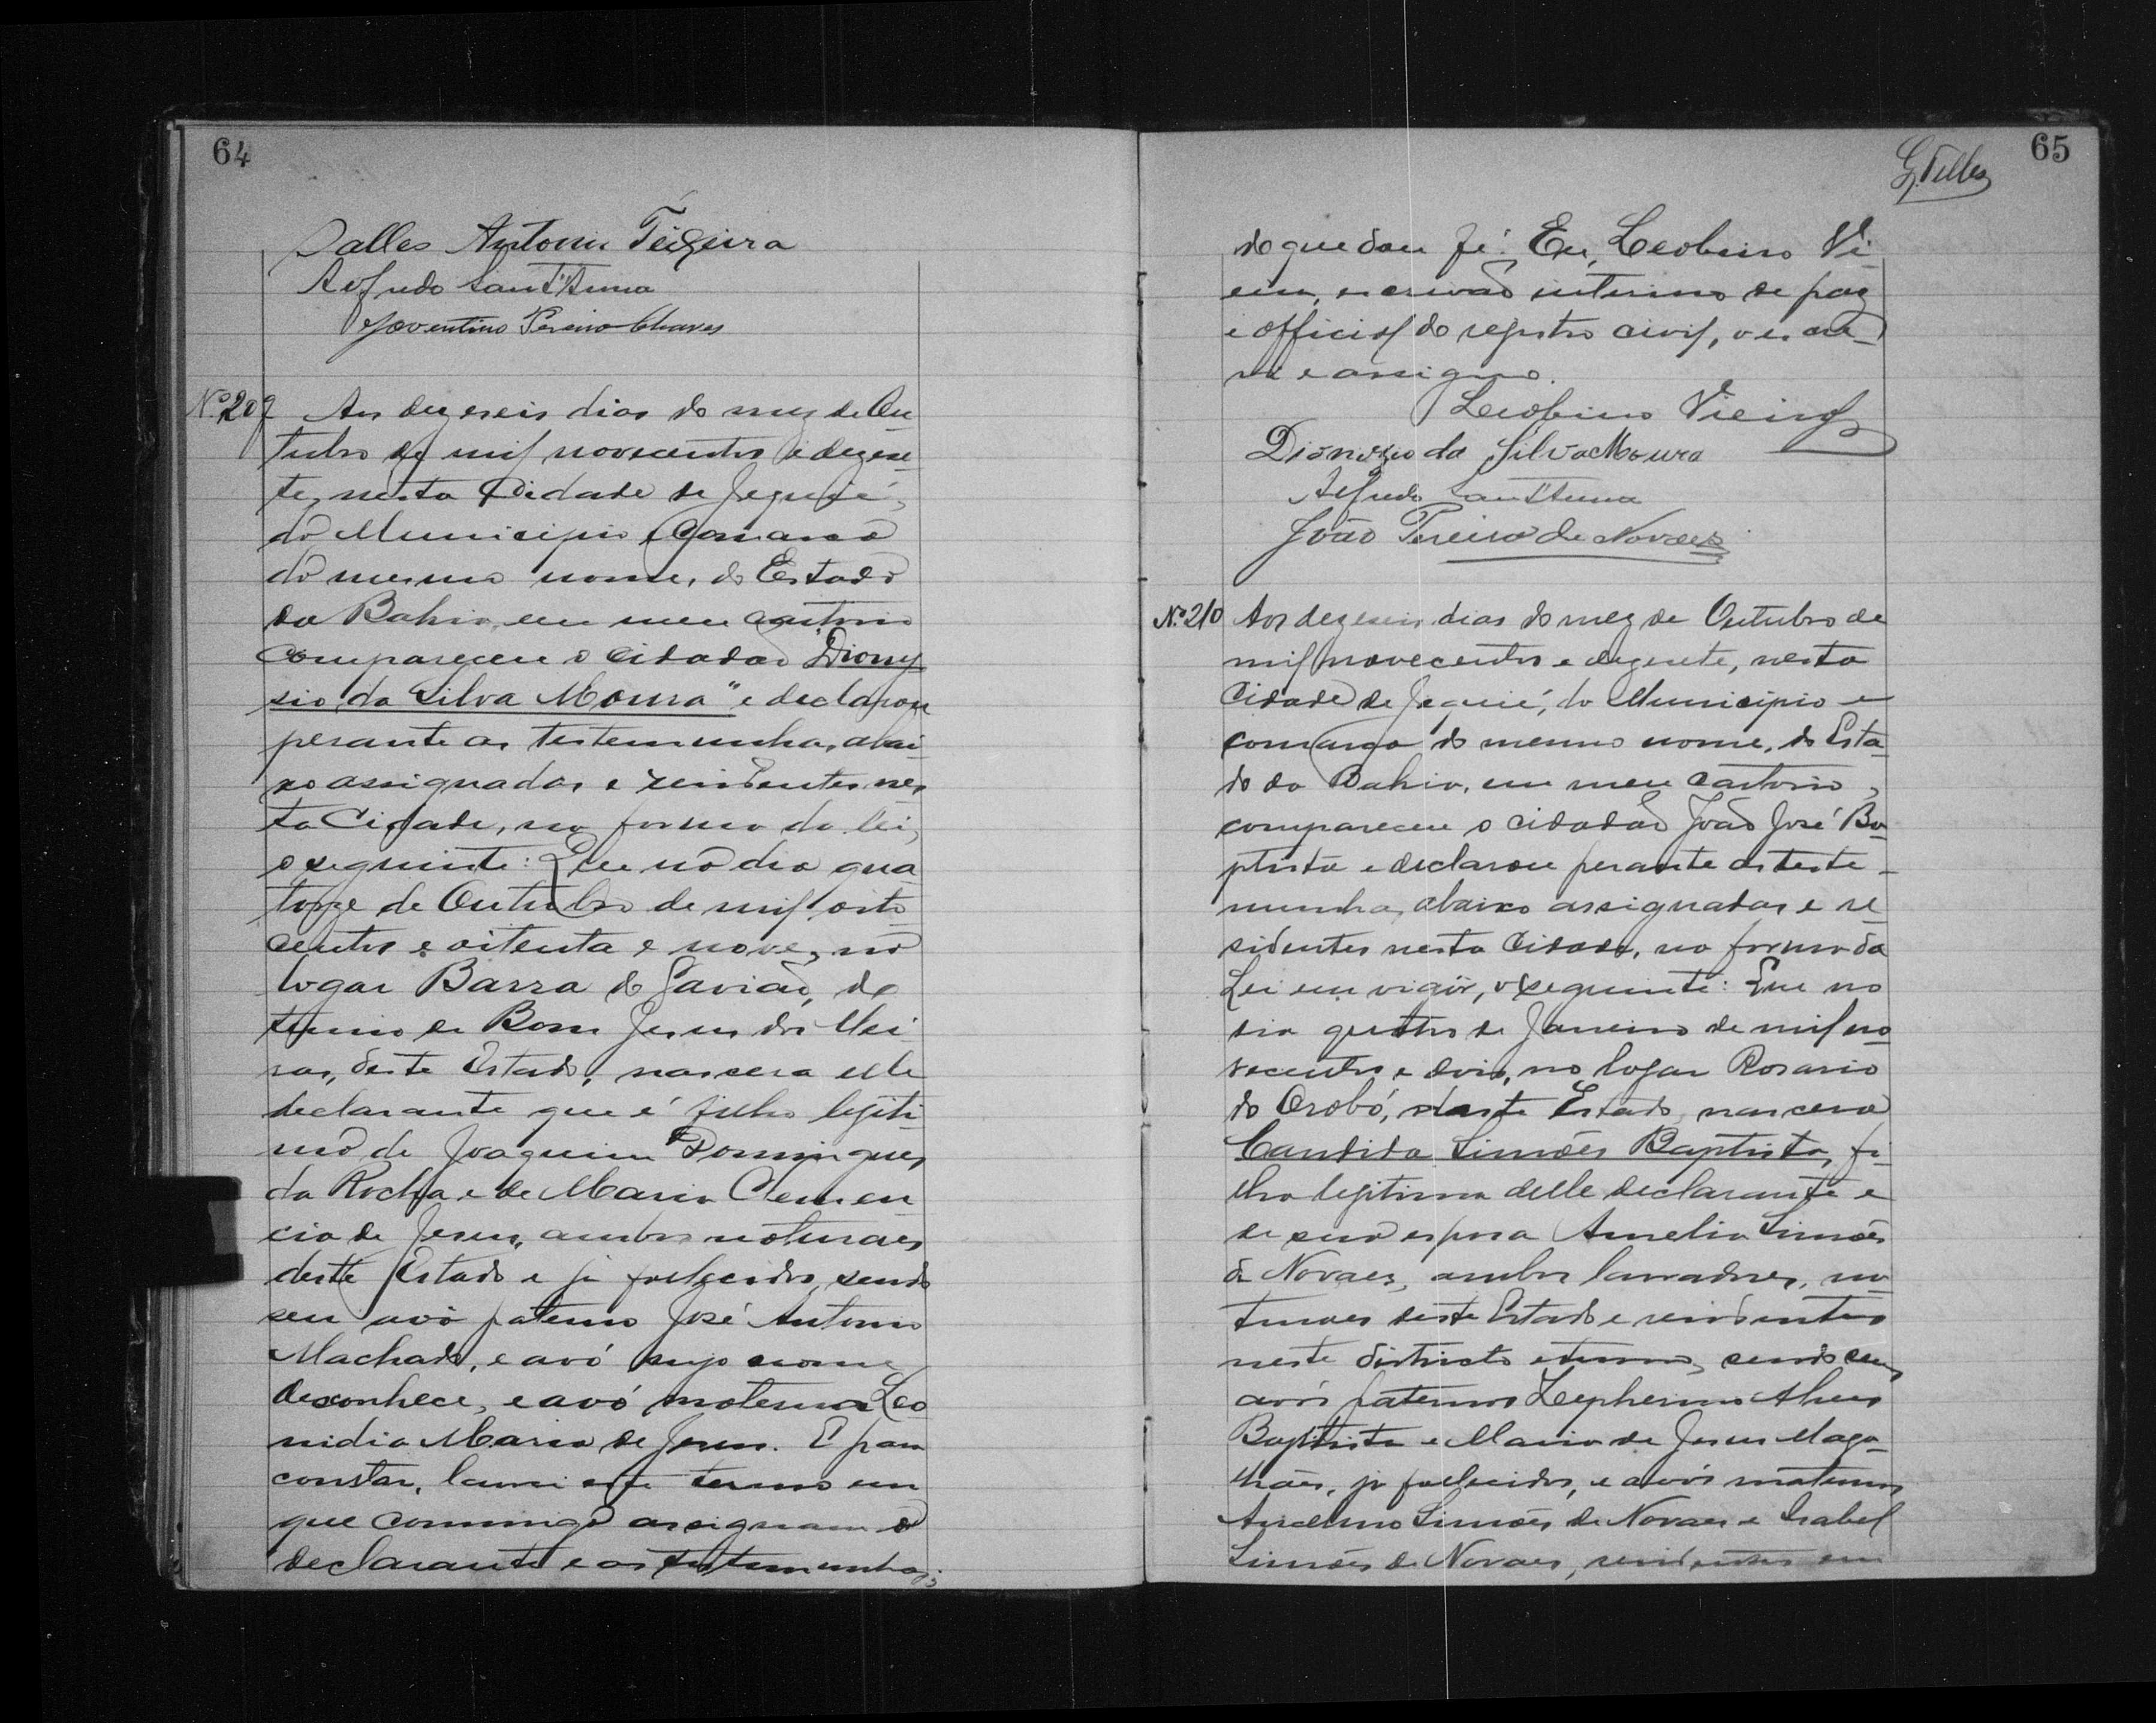 64
Salles Antonio Teixeira
Alfredo Sant'Anna
Joventino Pereira Chaves
Nº 209 Aos dezeseis dias do mez de Ou
tubro de mil novecentos e dezese
te, nesta Cidade de Jequié,
do Municipio e Comarca
do mesmo nome, do Estado
da Bahia, em meu cartorio
compareceu o cidadão Diony
sio da Silva Moura" e declarou
perante as testemunhas, abai
xo assignadas e residentes nes
ta Cidade, na forma da lei,
o seguinte: Que no dia qua
torze de Outubro de mil oito
centos e oitenta e nove, no
logar Barra do Gavião, do
termo de Bom Jesus dos Mei
ras, deste Estado, nascera elle
declarante que é filho legiti
mo de Joaquim Domingues
da Rocha e de Maria Clemen
cia de Jesus, ambos naturaes
deste Estado e já fallecidos, sendo
seu avô paterno José Antonio
Machado, e avó cujo nome
desconhece, e avó materna Leo
nidia Maria de Jesus. E para
constar, lavrei este termo em
que commigo assignam o
declarante e as testemunhas;
65
G. Telles
do que dou fé. Eu, Leobino Vi
eira, escrivão interino de paz
e official do registro civil, o escre
vi e assigno.
Leobino Vieira
Dionizio da Silva Moura
Alfredo Sant'Anna
João Pereira de Novaes
Nº 210 Aos dezeseis dias do mez de Outubro de
mil novecentos e dezesete, nesta
Cidade de Jequié, do Municipio e
comarca do mesmo nome, do Esta
do da Bahia, em meu cartorio,
compareceu o cidadão João José Ba
ptista e declarou perante as teste
munhas abaixo assignadas e re
sidentes nesta Cidade, na forma da
Lei em vigôr, o seguinte: Que no
dia quatro de Janeiro de mil no
vecentos e dois, no logar Rosario
do Orobó, deste Estado, nascera
Candida Simões Baptista, fi
lha legitima delle declarante e
de sua esposa Amelia Simões
de Novaes, ambos lavradores, na
turaes deste Estado e residentes
neste districto e termo, sendo seus
avós paternos Zepherino Alves
Baptista e Maria de Jesus Maga
lhães, já fallecidos, e avós maternos
Anselmo Simões de Novaes e Isabel
Simões de Novaes, residentes em